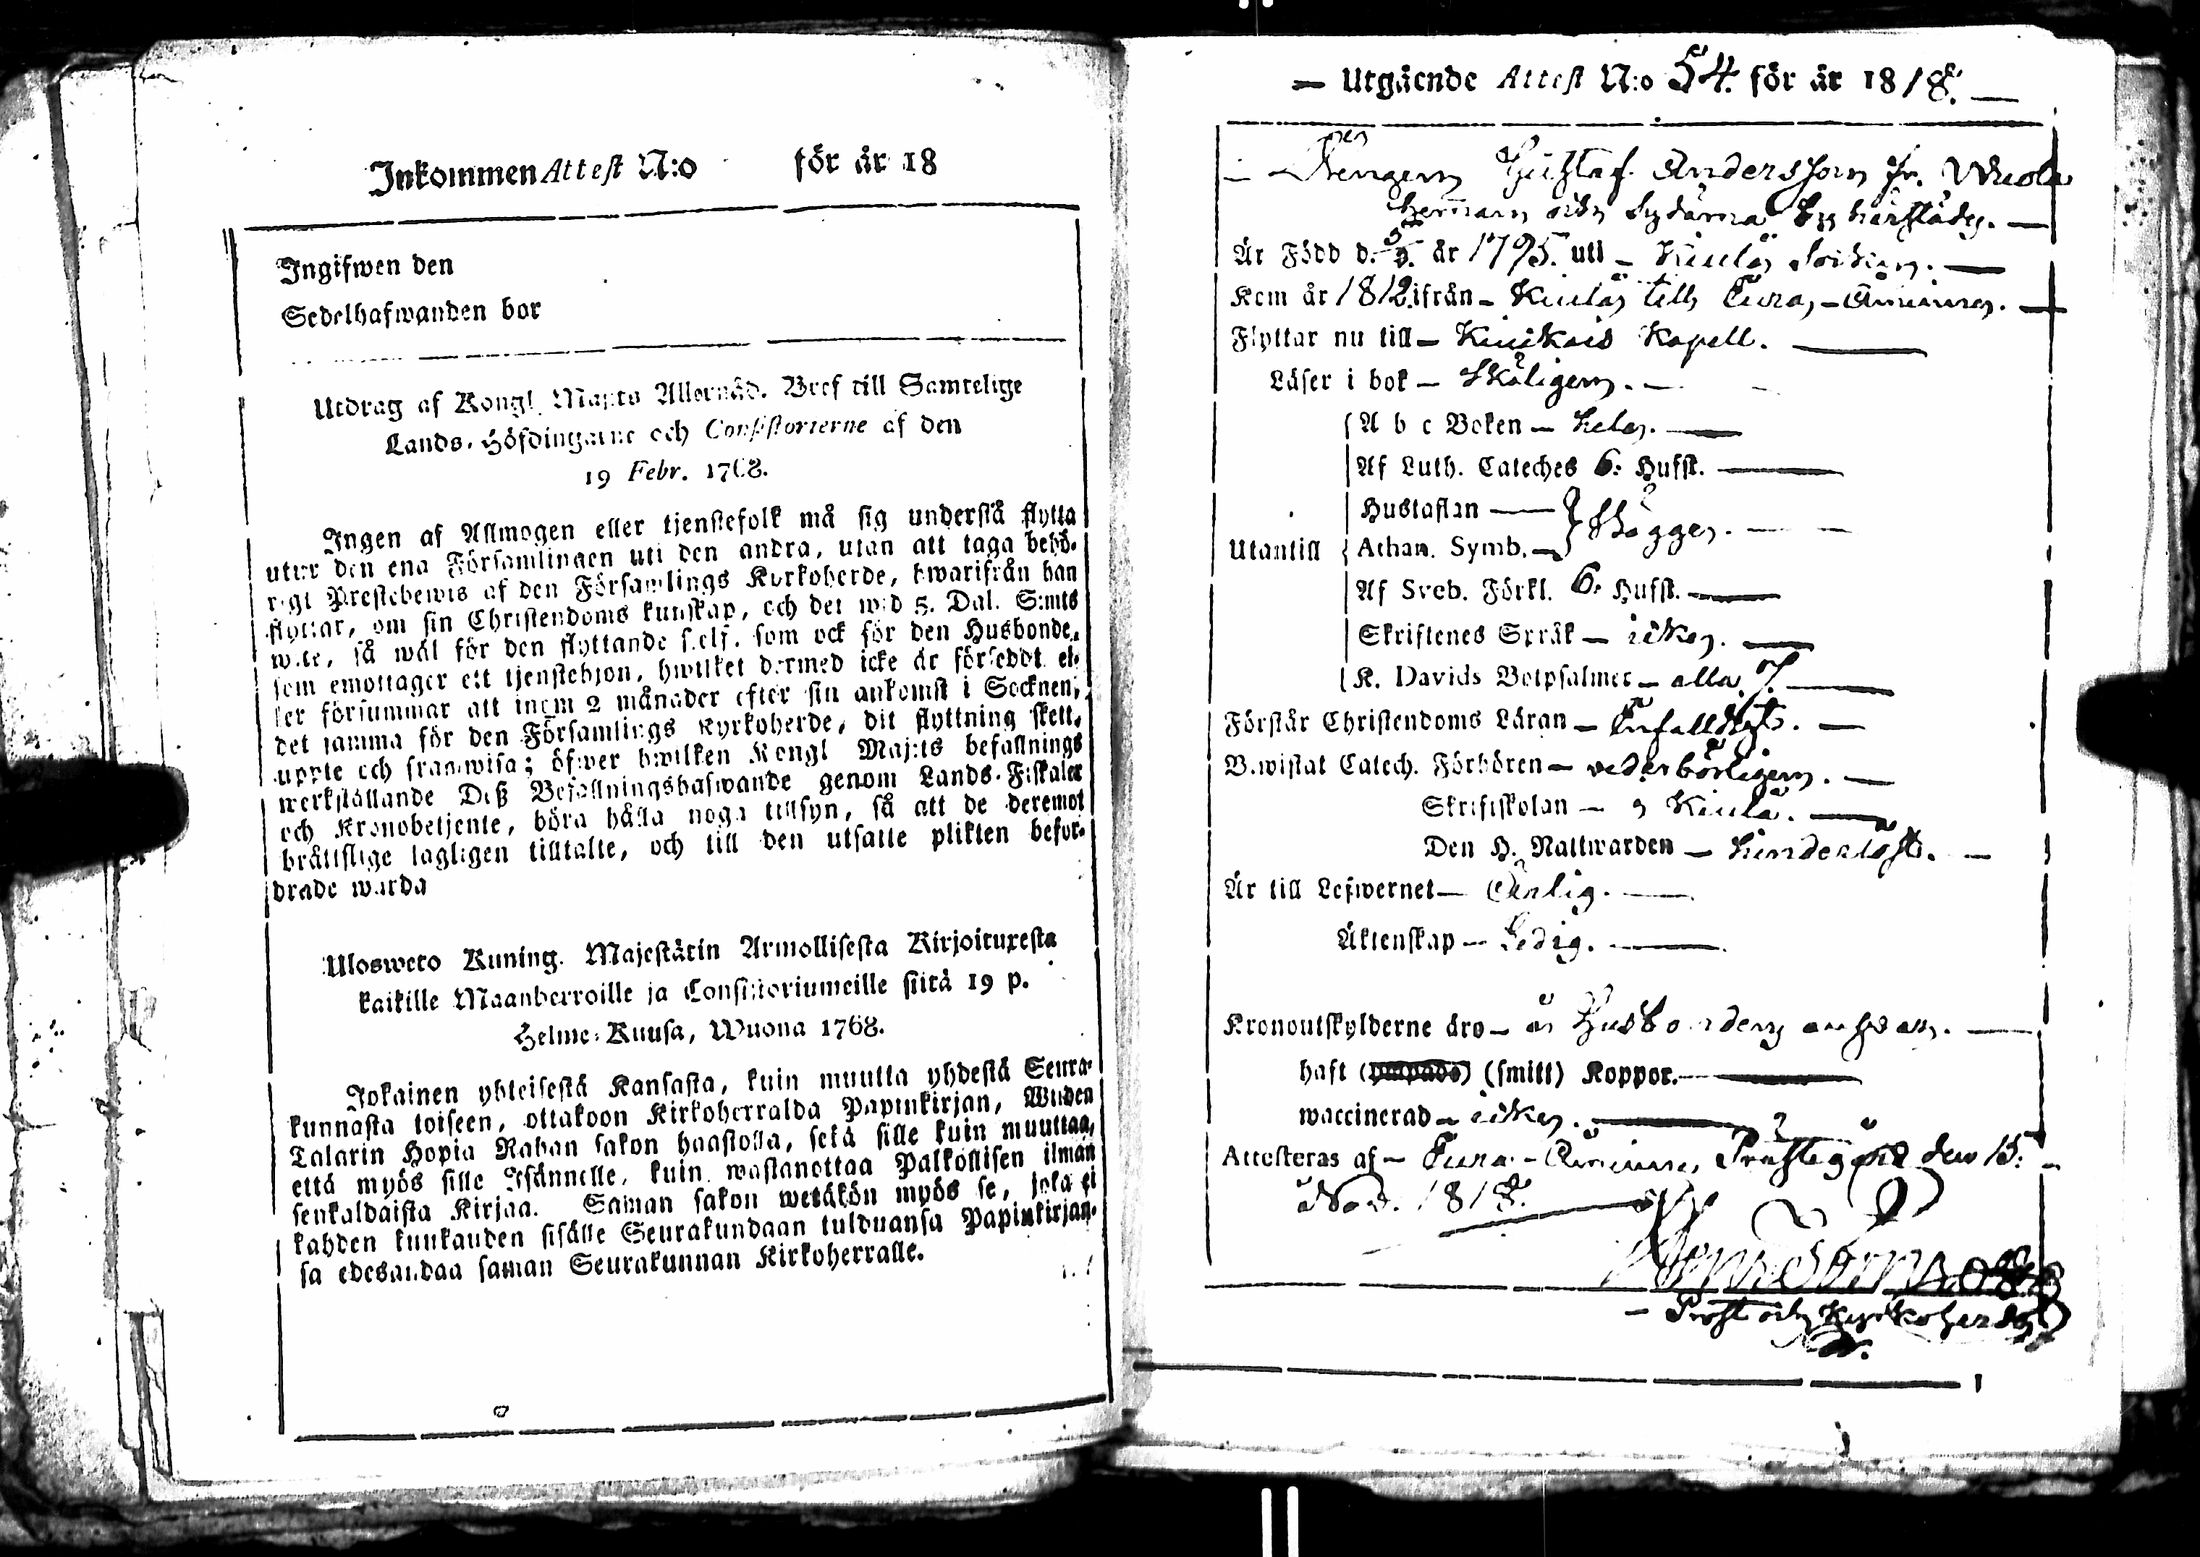 Inkommen Attest N:o för år 18
Ingifwen den
Sedelhafwanden bor
Utdrag af Kongl. Maj:ts Allernåd. Bref till Samtelige
Lands-Höfdingarne och Consistorierne af den
19 Febr. 1768.
Ingen af Allmogen eller tjenstefolk må sig understå flytta
utur den ena Församlingen uti den andra, utan att taga behö-
rigt Prestebewis af den Församlings Kyrkoherde, hwarifrån han
flyttar, om sin Christendoms kunskap, och det wid 5. Dal. S:mts
wite, så wäl för den flyttande self, som ock för den Husbonde,
som emottager ett tjenstehjon, hwilket dermed icke är försedt el-
ler försummar att inom 2 månader efter sin ankomst i Socknen,
det samma för den Församlings Kyrkoherde, dit flyttning skett,
uppte och framwisa; öfwer hwilken Kongl Maj:ts befallnings
werkställande Deß Befallningshafwande genom Lands-Fiskaler
och Kronobetjente, böra hålla noga tillsyn, så att de deremot
bråttslige lagligen tilltalte, och till den utsatte plikten befor-
drade warda
Ulosweto Kuning. Majestätin Armollisesta Kirjoituxesta
kaikille Maanherroille ja Consistoriumeille siitä 19 p.
Helme-Kuusa, Wuona 1768.
Jokainen yhteisestä Kansasta, kuin muutta yhdestä Seura-
kunnasta toiseen, ottakoon Kirkoherralda Papinkirjan, Wiiden
Talarin Hopia Rahan sakon haastolla, sekä sille kuin muuttaa,
että myös sille Isännelle, kuin wastanottaa Palkollisen ilman
senkaldaista Kirjaa. Saman sakon wetäkön myös se, joka ei
kahden kuukauden sisälle Seurakundaan tulduansa Papinkirjan-
sa edesandaa saman Seurakunnan Kirkoherralle.
— Utgående Attest N:o 54. för år 1818. —
— Drengen Gustaf Andersson fr. Wuola
Herman och by härstädes. —
Är Född d. år 1795. uti — Kiulo Socken. —
Kom år 1812 ifrån — Kiulo till Eura-Åminne. —
Flyttar nu till — Kiukais Kapell. —
Läser i bok — Skäligen. —
A b c Boken — hela. —
Af Luth. Cateches 6. Hufst. —
Hustaflan —
Utantill Athan. Symb. — Bägge. —
Af Sveb. Förkl. 6. Hufst. —
Skriftenes Språk — icke. —
K. Davids Botpsalmer — alla 7. —
Förstår Christendoms Läran — Enfalldigt. —
B.wistat Catech. Förhören — vederbörligen. —
Skriftskolan — i Kiulo. —
Den H. Nattwarden — hinderlöst. —
Är till Lefwernet — Ärlig. —
Äktenskap — Ledig. —
Kronoutskylderne äro — å Husbonden ansvar. —
haft (smitt) Koppor. —
waccinerad — icke. —
Attesteras af — Eura-Åminne Prästegård den 15. —
Nov. 1818.
— Prost och Kyrkoherde